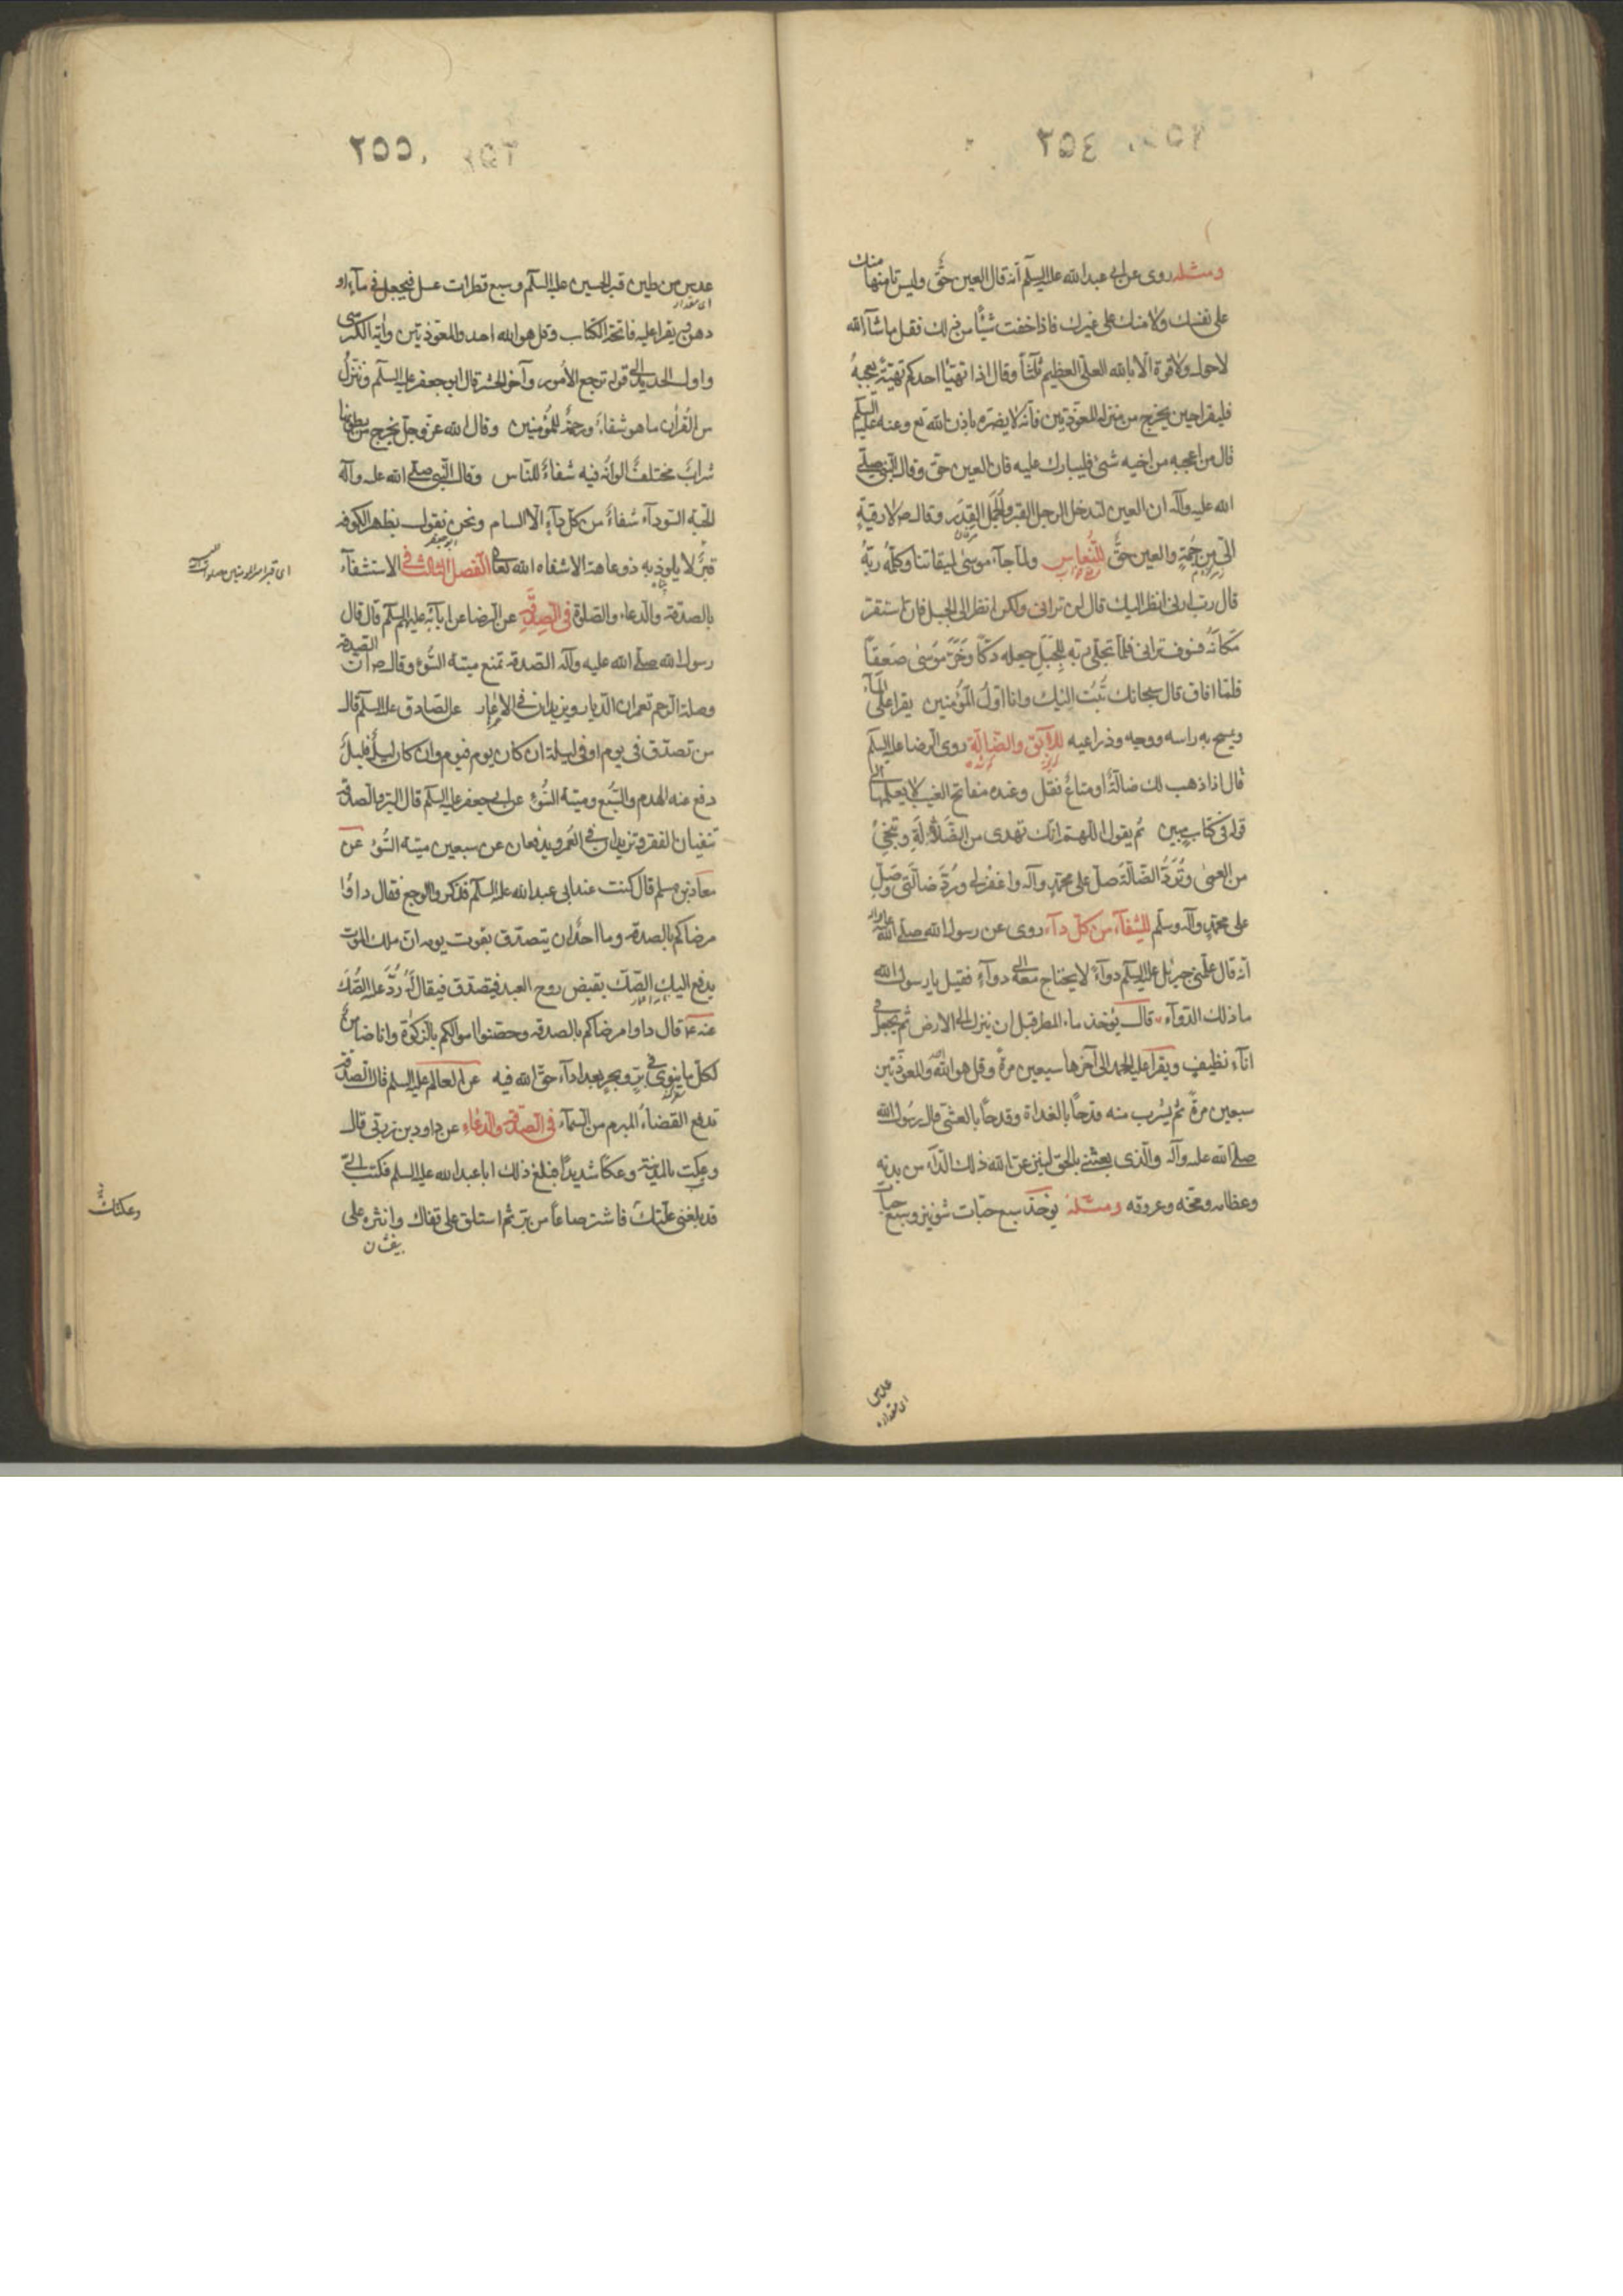 ٢٥٤
ومثله روى عن ابى عبد الله عليه السلم انه قال العين حقٌ وليس تامنها منك
على نفسك ولا منك على غيرك فاذا خفت شيئًا من ذلك فقل ما شآء الله
لا حول ولا قوة الا بالله العلى العظيم ثلثاً وقال اذا تهيّأ احدكم تهيئة تعجبهُ
فليقرا حين يخرج من منزله المعوّذتين فانه لا يضره باذن الله تع وعنه عليه السلم
قال من اعجبه من اخيه شئ فليبارك عليه فان العين حق وقال النبى صلى
الله عليه وآله ان العين لتدخل الرجل القبر والجمل القدر وقال ص لا رقية
الا من حُمَةٍ والعين حقٌ للنُّعاسِ ولما جآء موسى لميقاتنا وكلّمه ربّهُ
قال رب ارنى انظر اليك قال لن ترانى ولكن انظر الى الجبل فان استقر
مكانَهُ فسوف ترانى فلما تجلى ربّه للجَبَلِ جعله دكّا وخَرّ مُوسى صَعِقاً
فلمّا افاق قال سبحانك تُبتُ اليك وانا اوّلُ المؤمنين يقرا على المآء
ويمسح به راسه ووجهه وذراعيه للآبق والضّالّة روى الرضا عليه السلم
قال اذا ذهب لك ضالّةٌ او متاعٌ فقل وعنده مفاتح الغيب لا يعلمها الى
قوله فى كتاب مبين ثم يقول اللهم انك تهدى من الضَّلالَةِ وتُنجِىْ
من العمى وتُرَدُّ الضّالّةُ صل على محمد وآله واغفر لى ورُدَّ ضالّتى وصَلّ
على محمد وآله وسلم للشفآء من كل دآء روى عن رسول الله صلى الله عليه وآله
انه قال علّمنى جبرئيل عليه السلم دوآءً لا يحتاج معه الى دوآءٍ فقيل يا رسول الله
ما ذلك الدّوآء قال يُؤخذ ماء المطر قبل ان ينزل الى الارض ثم يجعل فى
انآء نظيف ويقرا عليه الحمد الى آخرها سبعين مرةً وقل هو الله والمعوذتين
سبعين مرةً ثم يشرب منه قدحاً بالغداة وقدحاً بالعشى قال رسول الله
صلى الله عليه وآله والّذى بعثنى بالحق لينزعن الله ذلك الدّآء من بدنِهِ
وعظامه ومخّه وعروقه ومثله يؤخذ سبع حبّات شونيز وسبع حبات
عدس
اى مقداره
٢٥٥
عدس من طين قبر الحسين عليه السلم وسبع قطرات عسل فيجعل فى مآء او
اى مقدار
دهن يقرا عليه فاتحة الكتاب وقل هو الله احد والمعوّذتين وآية الكرسى
واول الحديد الى قوله ترجع الأمور وآخر الحشر قال ابو جعفر عليه السلم وننزّلُ
من القُرآن ما هو شفاءٌ ورحمةٌ للمُؤمنين وقال الله عزّ وجلّ يخرج من بطونها
شرابٌ مختلفٌ الوانُه فيه شفاءٌ للنّاس وقال النبى صلى الله عليه وآله
الحبة السّودآء شفاءٌ من كلّ دآءٍ الّا السام ونحن نقول بظهر الكوفه
قبرٌ لا يلوذ به ذو عاهة الا شفاه الله تعالى الفصل الثالث فى الاستشفآء
اى قبر امير المؤمنين صلوات الله
بالصدقة والدعاء والصلوة فى الصَّدَقَةِ عن الرضا عن ابآئه عليهم السلم قال قال
رسول الله صلى الله عليه وآله الصدقة تمنع ميتة السُّوء وقال ص ان الصدقة
وصلة الرّحم تعمران الدّيار ويزيدان فى الاعمار عن الصّادق عليه السلم قال
من تصدّق فى يوم او فى ليلة ان كان يوم فيوم وان كان ليلٌ فليلٌ
دفع عنه الهدم والسَّبُع وميتة السُّوء عن ابى جعفر عليه السلم قال البرّ والصدقة
تنفيان الفقر وتزيدان فى العُمر ويدفعان عن سبعين ميتة السُّوْ عن
معاذ بن مسلم قال كنت عند ابى عبد الله عليه السلم فذكر والوجع فقال داوُا
مرضاكم بالصدقة وما احدٌ ان يتصدّق بقوت يومه ان ملك الموت
يدفع اليك الصّكّ بقبض روح العبد فيتصدّق فيقال لَهُ رُدّ عليه الصّكّ
عنه ع قال داوا مرضاكم بالصدقة وحصّنوا اموالكم بالزكوة وانا ضامنٌ
لكل ما ينوى فى برّ وبحر بعد ادآء حق الله فيه عن العالم عليه السلم قال الصدقة
تدفع القضاءُ المبرم من السّمآء فى الصّدقة والدّعاء عن داود بن زربى قال
وعكت بالمدينة وعكاً شديداً فبلغ ذلك ابا عبد الله عليه السلم فكتب الىّ
قد بلغنى علّتك فاشتر صاعاً من بر ثم استلق على قفاك وانثره على
وعكتك